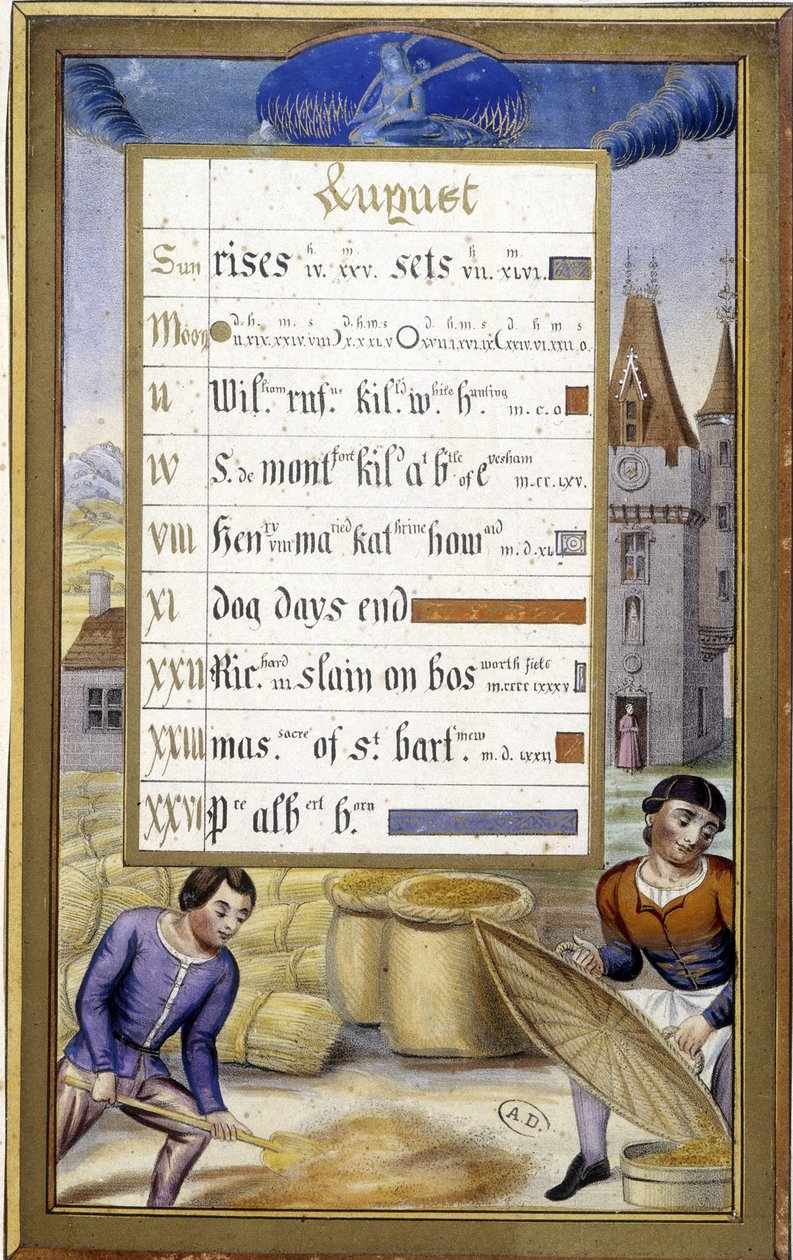 August
Sun rises h m iv. xxv. sets h m vii. xlvi.
Moon d. h. m. s d. h. m. s d. h. m. s d h m s
ii Wil.liam ruf.us kil.ld w.hile h.unting m. c. o
iv S. de montfort kild at btle of evesham m.cc.lxv.
viii Henry viii maried kathrine howard m. d. xl
xi dog days end
xxii Ric.hard iii slain on bosworth field m.cccc lxxxv
xxiii mas.sacre of st. bart.mew m. d. lxxii
xxvi Pce albert b.orn
A.D.